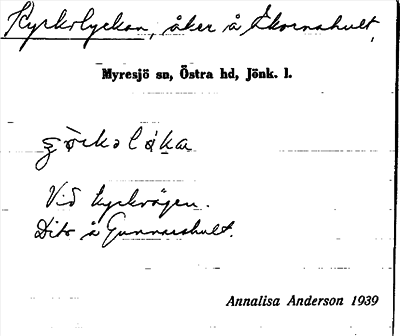 Kyrkolyckan, åker å Ekornahult,
Myresjö sn, Östra hd, Jönk. l.
Vid kyrkvägen.
Dito å Gunnarshult.
Annalisa Anderson 1939